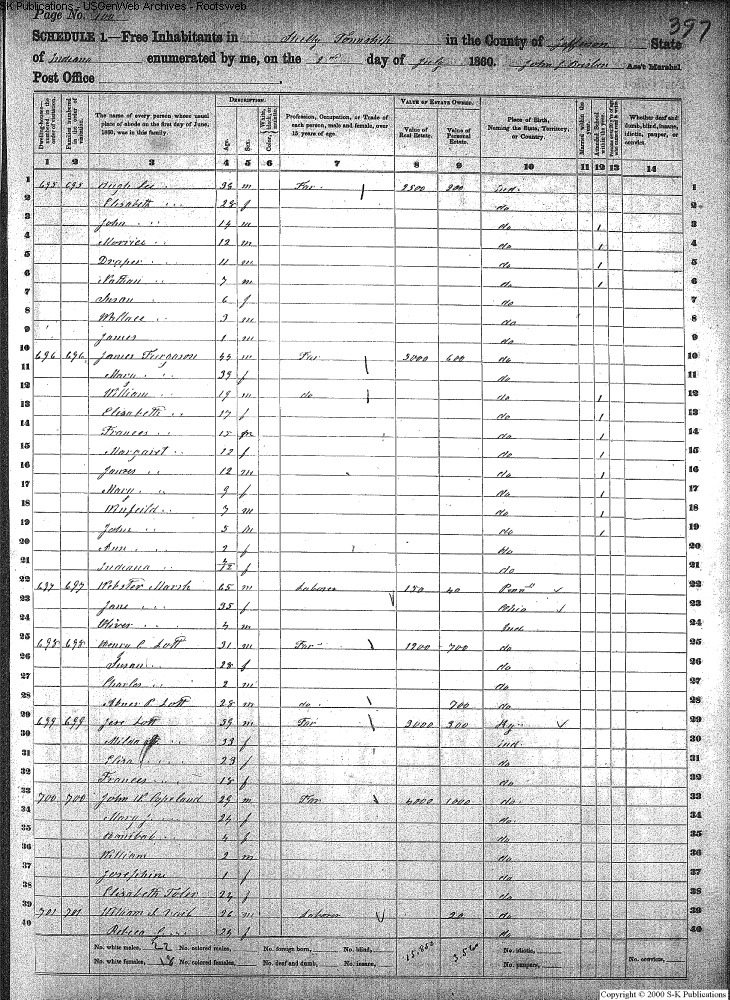 SK Publications - USGenWeb Archives - Rootsweb
Page No. 100
397
SCHEDULE 1.—Free Inhabitants in Shelby Township in the County of Jefferson State
of Indiana enumerated by me, on the day of July 1860. Ass't Marshal
Post Office
Dwelling-houses—numbered in the order of visitation.
Families numbered in the order of visitation.
The name of every person whose usual place of abode on the first day of June, 1860, was in this family.
DESCRIPTION.
Age.
Sex.
Color, White, black, or mulatto.
Profession, Occupation, or Trade of each person, male and female, over 15 years of age.
VALUE OF ESTATE OWNED.
Value of Real Estate.
Value of Personal Estate.
Place of Birth, Naming the State, Territory, or Country.
Married within the year.
Attended School within the year.
Whether deaf and dumb, blind, insane, idiotic, pauper, or convict.
1 2 3 4 5 6 7 8 9 10 11 12 13 14
1 695 695 Hugh Lee 38 m Far 2500 200 Ind. 1
2 Elisabeth 28 f do 2
3 John 14 m do 1 3
4 Morrice 12 m do 1 4
5 Draper 11 m do 1 5
6 Nathan 7 m do 1 6
7 Susan 6 f do 7
8 Wallace 3 m do 8
9 James 1 m do 9
10 696 696 James Furgason 44 m Far 3000 600 do 10
11 Mary 39 f do 11
12 William 19 m do do 1 12
13 Elisabeth 17 f do 1 13
14 Frances 15 do 1 14
15 Margaret 12 f do 1 15
16 James 12 m do 1 16
17 Mary 9 f do 1 17
18 Winfeild 7 m do 1 18
19 John 5 m do 1 19
20 Ann 2 f do 20
21 Indiana /12 f do 21
22 697 697 Webster Marsh 65 m Laborer 150 40 Penn 22
23 Jane 35 f Ohio 23
24 Oliver 4 m Ind 24
25 698 698 Henry C Lott 31 m Far 1200 700 do 25
26 Susan 28 f do 26
27 Charles 2 m do 27
28 Abner P Lott 28 m do 700 do 28
29 699 699 Jess Lott 39 m Far 3000 300 Ky 29
30 Milda 33 f Ind 30
31 Eliza 23 f do 31
32 Frances 18 f do 32
33 700 700 John W Copeland 29 m Far 4000 1000 do 33
34 Mary J 24 f do 34
35 4 f do 35
36 William 2 m do 36
37 Josephine 1 f do 37
38 Elizabeth Toler 24 f do 38
39 701 701 William 26 m Laborer 20 do 39
40 Rebeca 24 f do 40
No. white males, 22 No. colored males, No. foreign born, No. blind, 15.850 3.560 No. idiotic,
No. white females, 18 No. colored females, No. deaf and dumb, No. insane, No. paupers, No. convicts,
Copyright © 2000 S-K Publications